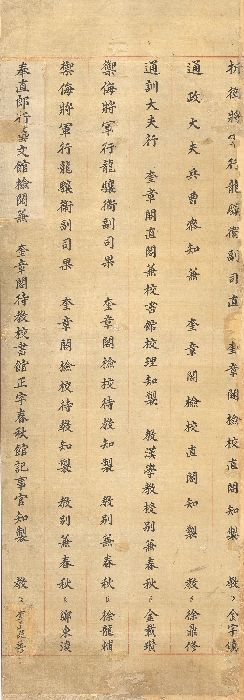 折衝將軍行龍驤衛副司直 奎章閣檢校直閣知製 教 金宇鎮
通政大夫兵曹參知兼 奎章閣檢校直閣知製 教 徐鼎修
通訓大夫行 奎章閣直閣兼校書館校理知製 教漢學教授別兼春秋 金載瓚
禦侮將軍行龍驤衛副司果 奎章閣檢校待教知製 教別兼春秋 徐龍輔
禦侮將軍行龍驤衛副司果 奎章閣檢校待教知製 教別兼春秋 鄭東浚
奉直郎行藝文館檢閱兼 奎章閣待教校書館正字春秋館記事官知製 教